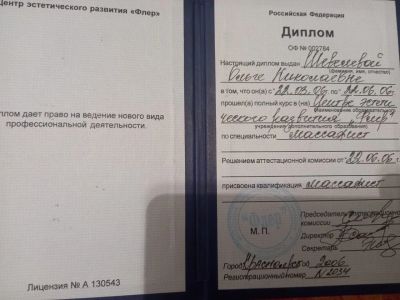 Центр эстетического развития «Флер»
плом дает право на ведение нового вида
профессиональной деятельности.
Лицензия № А 130543
Российская Федерация
Диплом
ОФ № 002784
Настоящий диплом выдан Шевелевой
(фамилия, имя, отчество)
Ольге Николаевне
в том, что он(а) с 22.03.06. по 22.06.06г.
прошел(а) полный курс в (на) Центре эстети
(наименование образовательного
ческого развития "Флер"
учреждения дополнительного образования)
по специальности массажист
Решением аттестационной комиссии от 22.06.06.
присвоена квалификация массажист
"Флер"
М. П.
Председатель
комиссии
Директор
Секретарь
Город Красноярск 2006
Регистрационный номер N 2034